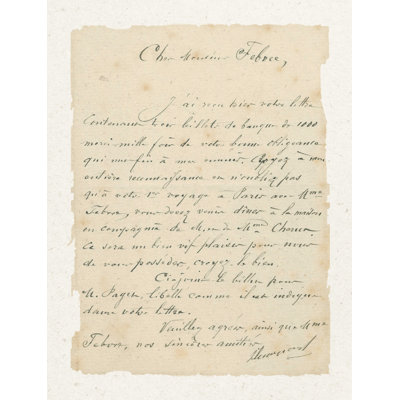 Cher Monsieur Febvre,
J'ai reçu hier votre lettre
contenant trois billets de banque de 1000
merci mille fois de votre bonne obligeance
qui me fin à mes ennuis. Croyez à mon
entière reconnaissance et n'oubliez pas
qu'à votre 1er voyage à Paris avec Mme
Febvre, vous devez venir dîner à la maison
en compagnie de M. et de Mme
Ce sera un bien vif plaisir pour nous
de vous posséder, croyez le bien.
Ci-joint le billet pour
M. Paget, libellé comme il est indiqué
dans votre lettre.
Veuillez agréer, ainsi que Mme
Febvre, nos sincères amitiés